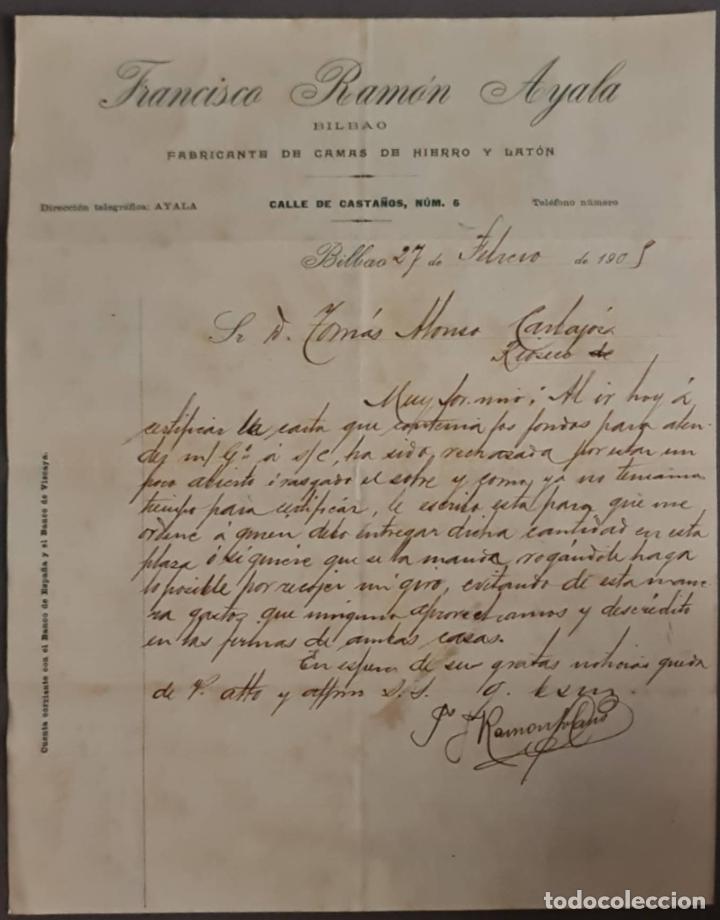 Francisco Ramón Ayala
BILBAO
FABRICANTE DE CAMAS DE HIERRO Y LATÓN
Dirección telegráfica: AYALA
CALLE DE CASTAÑOS, NÚM. 6
Teléfono número
Bilbao 27 de Febrero de 1905
Sr D. Tomás Alonso
Rioseco de
Muy Sor. mio: Al ir hoy á
certificar la carta que contenia los fondos para aten-
der m/ Gº á s/c, ha sido rechazada por estar un
poco abierto i rasgado el sobre y como ya no teniamos
tiempo para certificar, le escribo esta para que me
ordene á quien debo entregar dicha cantidad en esta
plaza ó si quiere que se la mande, rogandole haga
lo posible por recojer mi giro, evitando de esta mane-
ra gastos que ninguno aprovechamos y descrédito
en las firmas de ambas casas.
En espera de sus gratas noticias queda
de V. atto y affmo S.S. q. b.s.m.
Cuenta corriente con el Banco de España y el Banco de Vizcaya.
todocoleccion
todocoleccion.net